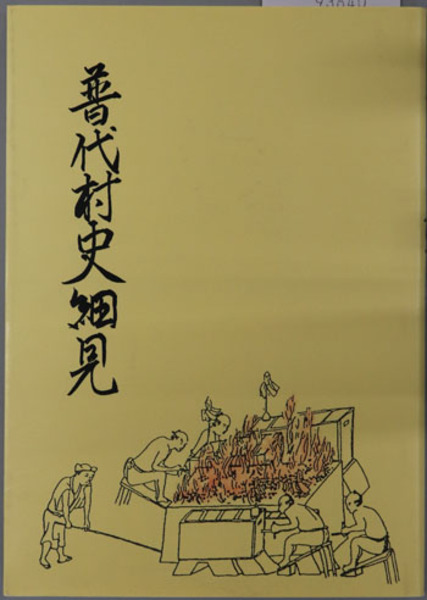 普代村史細見